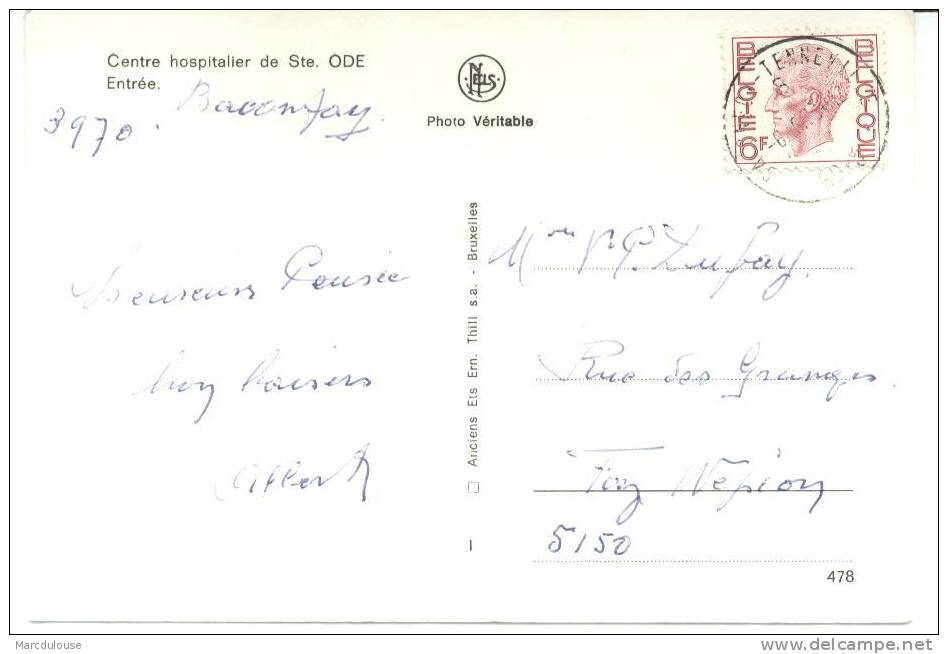 Centre hospitalier de Ste. ODE
Entrée.
Baconfoy.
3970.
NELS
Photo Véritable
BELGIE
BELGIQUE
6F
TENNEVILLE
Pensée
bons baisers
Albert
Anciens Ets Ern. Thill s.a. - Bruxelles
Mme P. Dufay.
Rue des Granges.
Foy Wépion
5150
I
478
Marcdulouse
www.delcampe.net